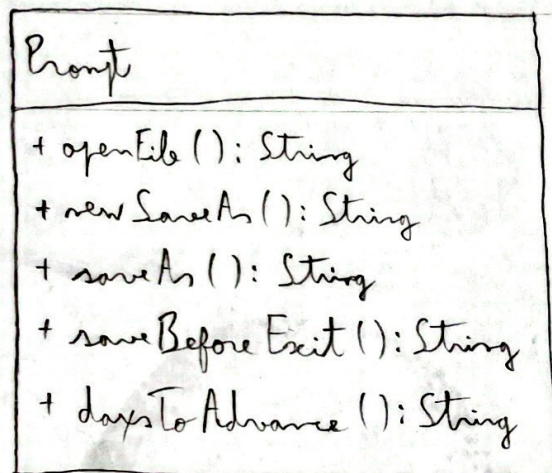 Prompt
+ openFile (): String
+ newSaveAs (): String
+ saveAs (): String
+ saveBeforeExit (): String
+ daysToAdvance (): String